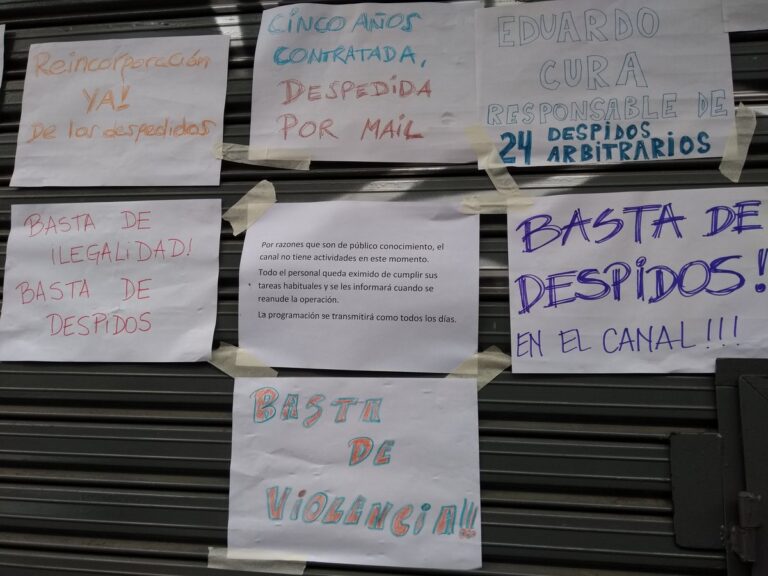 Reincorporación
YA!
De los despedidos
CINCO AÑOS
CONTRATADA,
DESPEDIDA
POR MAIL
EDUARDO
CURA
RESPONSABLE DE
24 DESPIDOS
ARBITRARIOS
BASTA DE
iLEGALIDAD!
BASTA DE
DESPIDOS
Por razones que son de público conocimiento, el
canal no tiene actividades en este momento.
Todo el personal queda eximido de cumplir sus
tareas habituales y se les informará cuando se
reanude la operación.
La programación se transmitirá como todos los días.
BASTA DE
DESPIDOS!
EN EL CANAL!!!
BASTA
DE
ViOLENCiA!!!